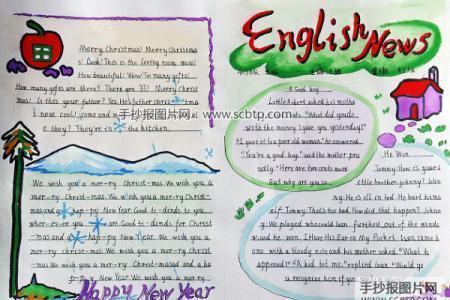 Merry Christmas! Merry Christma
s Bob! This is the living room. Wow!
How beautiful! Wow! So many gifts!
How many gifts are there? There are 33! Merry Christ
mas! Is this your father? Yes He's father christ mas
now cool! come and m
o they? They're in the kitchen.
手抄报图片网 www.scbtp.com
We wish you a mer-ry Christ-mas. We wish you a
mer-ry Christ-mas. We wish you a mer-ry Christ-
mas and a hap-py New Year. Good ti-dings to you
wher-ev-er you are Good ti-dings for Christ
-mas and a hap-py New Year. We wish you a
mer-ry Christ-mas. We wish you a merry Christ-
mas We wish you a mer-ry Christ-masand a ha
p-py New Year. We wish you a mer-ry Christ-mas.
Happy New Year
English News
A Good boy
Little Robert asked his mothe
cents. "What did you do
with the money I gave you yesterday?"
"I gave it to a poor old woman," he answered.
"You're a good boy," said the mother pro
udly. "Here are two cents more
But why are you
He Won
Tommy: How is your
little brother, Johnny? John
ny: He is ill in bed. He hurt hims
elf. Tommy: That's too bad. How did that happen? John
ny: We played who could lean furthest out of the windo
w and he won. I Have His Ear in My Pocket. Ivan came
home with a bloody nose and his mother asked, "What h
appened?" "A kid bit me," replied Ivan. "Would yo
u recognize him if you
手抄报图片网
WWW.SCBTP.COM